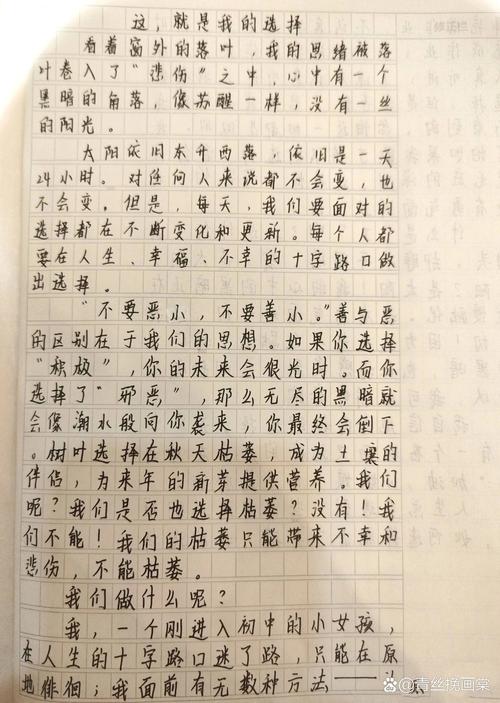 这，就是我的选择
看着窗外的落叶，我的思绪被落
叶卷入了“悲伤”之中，心中有一个
黑暗的角落，像苏醒一样，没有一丝
的阳光。
太阳依旧东升西落，依旧是一天
24小时。对任何人来说都不会变，也
不会变。但是，每天，我们要面对的
选择都在不断变化和更新。每个人都
要在人生、幸福、不幸的十字路口做
出选择。
“不要恶小，不要善小。”善与恶
的区别在于我们的思想。如果你选择
“积极”，你的未来会很光时。而你
选择了“邪恶”，那么无尽的黑暗就
会像潮水般向你袭来，你最终会倒下
。树叶选择在秋天枯萎，成为土壤的
伴侣，为来年的新芽提供营养。我们
呢？我们是否也选择枯萎？没有！我
们不能！我们的枯萎只能带来不幸和
悲伤，不能枯萎。
我们做什么呢？
我，一个刚进入初中的小女孩，
在人生的十字路口迷了路，只能在原
地徘徊；我面前有无数种方法——
青丝挽画棠